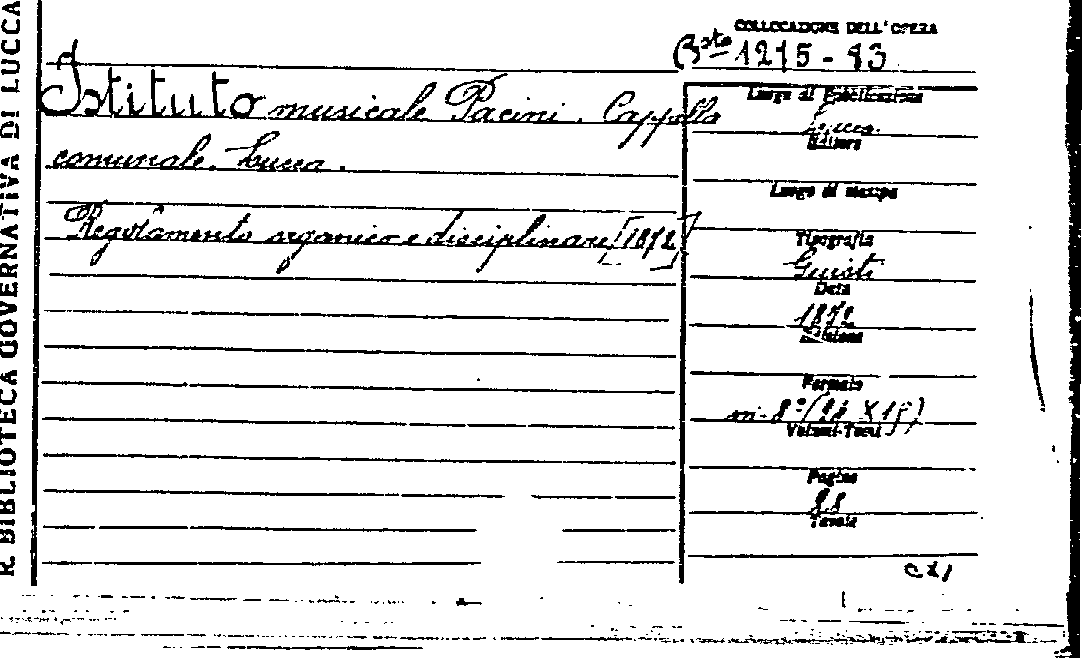 R. BIBLIOTECA GOVERNATIVA DI LUCCA
COLLOCAZIONE DELL'OPERA
Bsta 1215 - 13
Istituto musicale Pacini. Cappella
comunale. Lucca.
Regolamento organico e disciplinare [1872]
Luogo di Pubblicazione
Lucca.
Editore
Luogo di stampa
Tipografia
Giusti
Data
1872
Edizione
Formato
in-8°
Volumi-Tomi
Pagine
Tavole